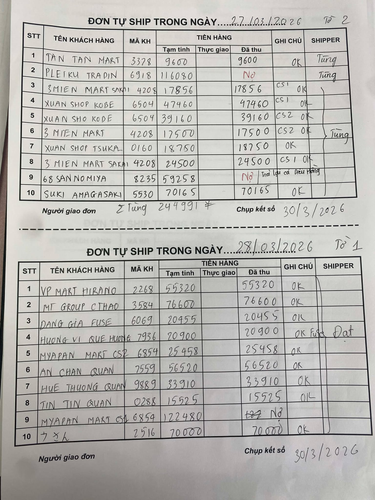 ĐƠN TỰ SHIP TRONG NGÀY 27/03/2026 Tờ 2
STT TÊN KHÁCH HÀNG MÃ KH TIỀN HÀNG GHI CHÚ SHIPPER
Tạm tính Thực giao Đã thu
1 TAN TAN MART 3378 9600 9600 OK Tùng
2 PLEIKU TRADIN 6918 116080 Nợ Tùng
3 3MIEN MART SAKAI 4208 17856 17856 CS1 OK
4 XUAN SHOP KOBE 6504 47460 47460 CS1 OK
5 XUAN SHO KOBE 6504 39160 39160 CS2 OK
6 3 MIEN MART 4208 17500 17500 CS2 OK Tùng
7 XUAN SHOP TSUKA 0160 18750 18750 OK
8 3 MIEN MART SAKAI 4208 24500 24500 CS1 OK
9 68 SANNOMIYA 8235 59258 Nợ
10 SUKI AMAGASAKI 5530 70165 70165 OK
Người giao đơn Σ Tùng 244991 Chụp kết sổ 30/3/2026
ĐƠN TỰ SHIP TRONG NGÀY 28/03/2026 Tờ 1
STT TÊN KHÁCH HÀNG MÃ KH TIỀN HÀNG GHI CHÚ SHIPPER
Tạm tính Thực giao Đã thu
1 VP MART HIRANO 2268 55320 55320 OK
2 MT GROUP CTHAO 3584 76600 76600 OK
3 DANG GIA FUSE 6069 20455 20455 OK
4 HUONG VI QUE HUONG 7956 20900 20900 OK Fuse Đạt
5 MYAPAN MART CS2 6854 25458 25458 OK
6 AN CHAN QUAN 7559 56520 56520 OK
7 HUE THUONG QUAN 9889 33910 33910 OK
8 TIN TIN QUAN 0288 15525 15525 OK
9 MYAPAN MART CS1 6854 122480 Nợ
10 2516 70000 70000 OK
Người giao đơn Chụp kết sổ 30/3/2026